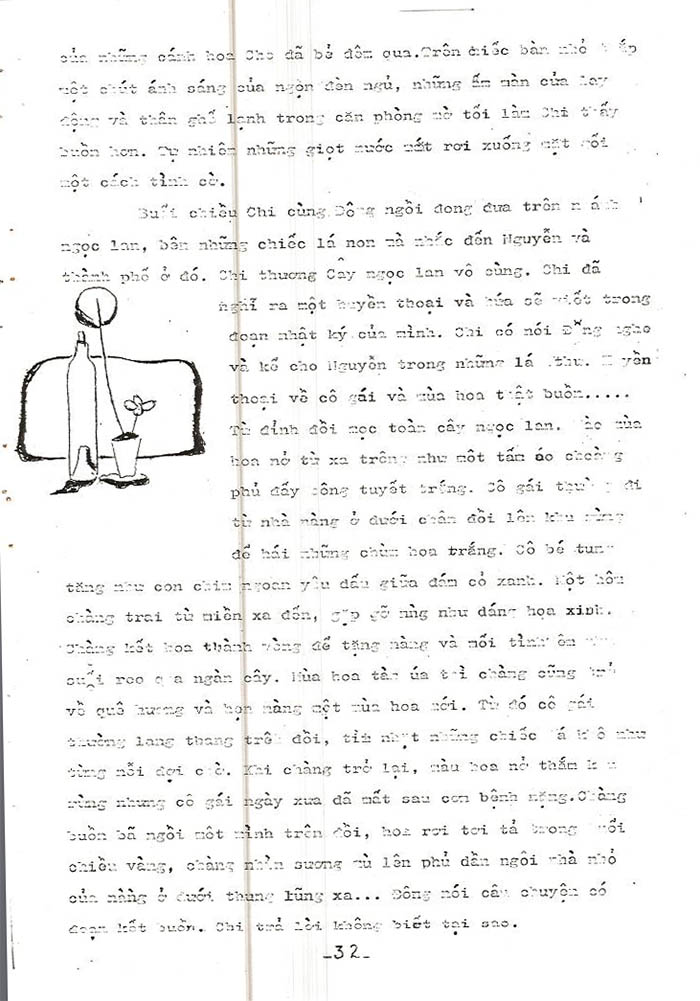 của những cánh hoa Cho đã bẻ đêm qua.Trên chiếc bàn nhỏ
một chút ánh sáng của ngọn đèn ngủ, những ấm màn của lay
động và thân ghế lạnh trong căn phòng mờ tối làm Chi thấy
buồn hơn. Tự nhiên những giọt nước mắt rơi xuống mặt gối
một cách tình cờ.
Buổi chiều Chi cùng Đông ngồi đong đưa trên nhánh
ngọc lan, bên những chiếc lá non mà nhắc đến Nguyễn và
thành phố ở đó. Chi thương Cây ngọc lan vô cùng. Chi đã
nghĩ ra một huyền thoại và hứa sẽ viết trong
đoạn nhật ký của mình. Chi có nói Đông nghe
và kể cho Nguyễn trong những lá thư. Huyền
thoại về cô gái và mùa hoa thật buồn.....
Từ đỉnh đồi mọc toàn cây ngọc lan. Vào mùa
hoa nở từ xa trông như một tấm áo choàng
phủ đầy bông tuyết trắng. Cô gái thường đi
từ nhà nàng ở dưới chân đồi lên khu rừng
để hái những chùm hoa trắng. Cô bé tung
tăng như con chim ngoan yêu dấu giữa đám cỏ xanh. Một hôm
chàng trai từ miền xa đến, gặp gỡ nàng như dáng họa xinh.
Chàng kết hoa thành vòng để tặng nàng và mối tình êm như
suối reo qua ngàn cây. Mùa hoa tàn úa thì chàng cũng trở
về quê hương và hẹn nàng một mùa hoa mới. Từ đó cô gái
thường lang thang trên đồi, tìm nhặt những chiếc lá khô như
từng nỗi đợi chờ. Khi chàng trở lại, màu hoa nở thắm khu
rừng nhưng cô gái ngày xưa đã mất sau cơn bệnh nặng.Chàng
buồn bã ngồi một mình trên đồi, hoa rơi tơi tả trong buổi
chiều vàng, chàng nhìn sương mù lên phủ dần ngôi nhà nhỏ
của nàng ở dưới thung lũng xa... Đông nói câu chuyện có
đoạn kết buồn. Chi trả lời không biết tại sao.
-32-